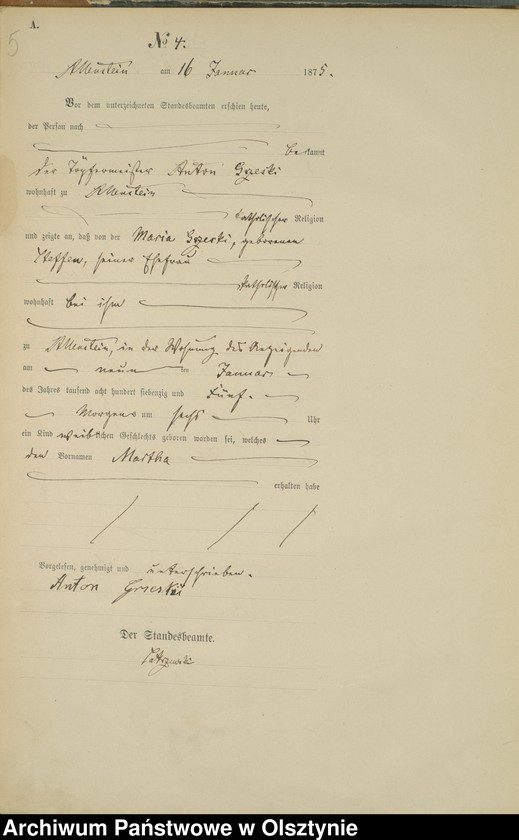 A.
5
No 4.
Allenstein am 16 Januar 1875.
Vor dem unterzeichneten Standesbeamten erschien heute,
der Person nach
bekannt
der Töpfermeister Anton
wohnhaft zu Allenstein
katholischer Religion
und zeigte an, daß von der Maria geborenen
Steffen, seiner Ehefrau
katholischer Religion
wohnhaft bei ihm
zu Allenstein, in der Wohnung des Anzeigenden
am neun ten Januar
des Jahres tausend acht hundert siebenzig und Fünf
Morgens um sechs Uhr
ein Kind weiblichen Geschlechts geboren worden sei, welches
den Vornamen Martha
erhalten habe
Vorgelesen, genehmigt und unterschrieben.
Anton
Der Standesbeamte.
Archiwum Państwowe w Olsztynie